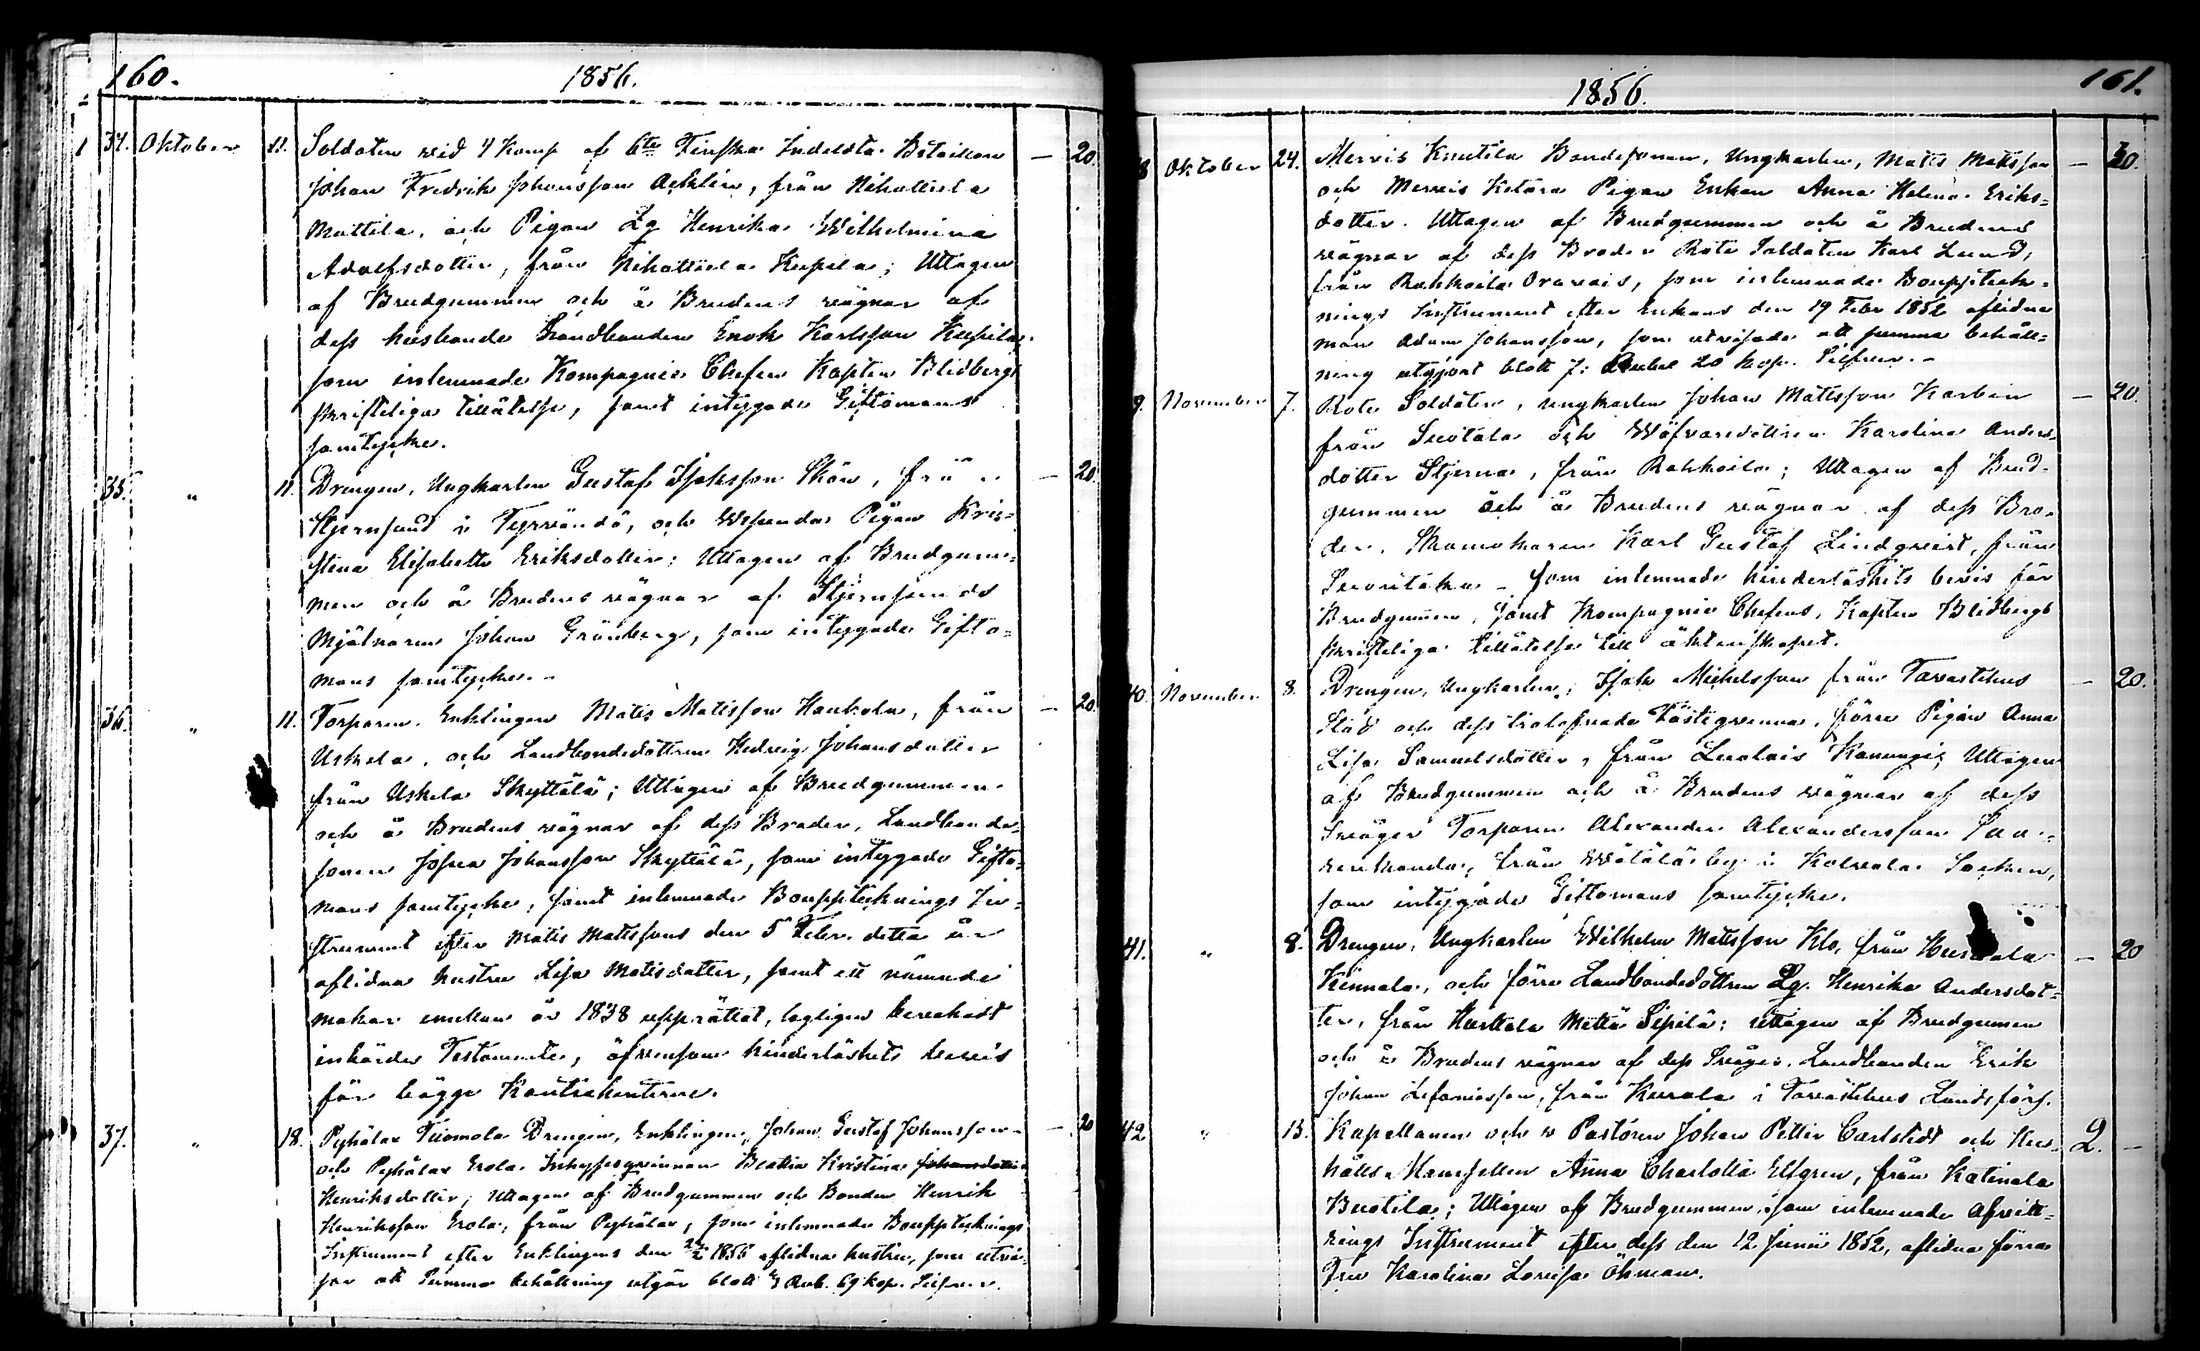 160.
1856.
34. Oktober 11. Soldaten vid 4 Komp af 6te Finska Indelsta Bataillon — 20.
Johan Fredrik Johansson Acklin, från Nihattula
Mattila, och Pigan Lg Henrika Wilhelmina
Adolfsdotter, från Nihattula Kupila; Uttagen
af Brudgummen och å Brudens vägnar af
dess husbonde Landbonden Enok Karlsson Kupila,
som inlemnade Kompagnie Chefen Kapten Blidbergs
skriftliga tillåtelse, samt intygade Giftomans
samtycke.
35. " 11. Drengen, Ungkarlen Gustaf Isaksson Skön, från — 20.
Stjernsund i Tyrvändö, och Pigan Kris=
tina Elisabeth Eriksdotter; Uttagen af Brudgum=
men och å Brudens vägnar af Stjernsunds
Mjölnaren Johan Grönberg, som intygade Gifto=
mans samtycke. –
36. " 11. Torparen, Enklingen Matts Mattsson Haukola, från — 20.
Uskela, och Landbondedottren Hedvig Johansdotter
från Uskela Skyttälä; Uttagen af Brudgummen
och å Brudens vägnar af dess Broder, Landbonde=
sonen Josua Johansson Skyttälä, som intygade Gifto=
mans samtycke, samt inlemnade Boupptecknings In=
strument efter Matts Mattssons den 5 Febr. detta år
aflidna hustru Lisa Mattsdotter, samt ett nämnde
makar emellan år 1838 upprättat, lagligen bevakadt
inbördes Testamente, äfvensom hinderlöshets bevis
för bägge Kontrahenterne.
37. " 18. Pyhälax Tuomola Drengen, Enklingen, Johan Gustaf Johansson — 20
och Pyhälax Erola Inhysesqvinnan Beatha Kristina Johansdotter
Henriksdotter; Uttagen af Brudgummen och Bonden Henrik
Henriksson Erola, från Pyhälax, som inlemnade Boupptecknings
Instrument efter Enklingens den 1856 aflidna hustru, som utvi=
sar att Summa behållning utgör blott Rub. 69 kop. Silfver.
161.
1856.
38 Oktober 24. Mervis Knutila Bondesonen, Ungkarlen, Matts Mattsson — 30.
och Mervis Ketära Pigan Enkan Anna Helena Eriks=
dotter. Uttagen af Brudgummen och å Brudens
vägnar af dess Broder Rote Soldaten Karl Lund,
från Rahkoila Oravais, som inlemnade Boupptek=
nings Instrument efter Enkans den 19 Febr 1852 aflidna
man Adam Johansson, som utvisade att summa behåll=
ning utgjort blott 7: Rubel 20 kop. Silfver. –
39. November 7. Rote Soldaten, ungkarlen Johan Mattsson Karbin — 20.
från Suotala och Wäfvaredottren Karolina Anders=
dotter Stjerna, från Rahkoila; Uttagen af Brud=
gummen och å Brudens vägnar af dess Bro=
der, Skomakaren Karl Gustaf Lindqvist, från
Suontaka – som inlemnade hinderlöshets bevis för
Brudgummen, samt Kompagnie Chefens, Kapten Blidbergs
skriftliga tillåtelse till äktenskapet.
40. November 8. Drengen, Ungkarlen, Isak Michelsson från Tavastehus — 20.
Stad och dess trolofvade Fästeqvinna, förra Pigan Anna
Lisa Samuelsdotter, från Luolais Kanungi; Uttagen
af Brudgummen och å Brudens vägnar af dess
Svåger Torparen Alexander Alexandersson
från Wätälä by i Kalvola Socken,
som intygade Giftomans samtycke.
41. " 8. Drengen, Ungkarlen Wilhelm Mattsson Klo, från — 20
Kinnala, och förra Landbondedottren Lg. Henrika Andersdot=
ter, från Harttala Mattä Sipilä; uttagen af Brudgumen
och å Brudens vägnar af dess Svåger, Landbonden Erik
Johan Zefaniasson, från Kurala i Tavastehus Landsförs.
42 " 13. Kapellanen och v Pastoren Johan Petter Carlstedt och Hus= 2. —
hålls Mamsellen Anna Charlotta Elfgren, från Katinala
Buotila; Uttagen af Brudgummen, som inlemnade Afvitt=
rings Instrument efter dess den 12 Junii 1852, aflidna förra
Fru Karolina Lovisa Öhman.